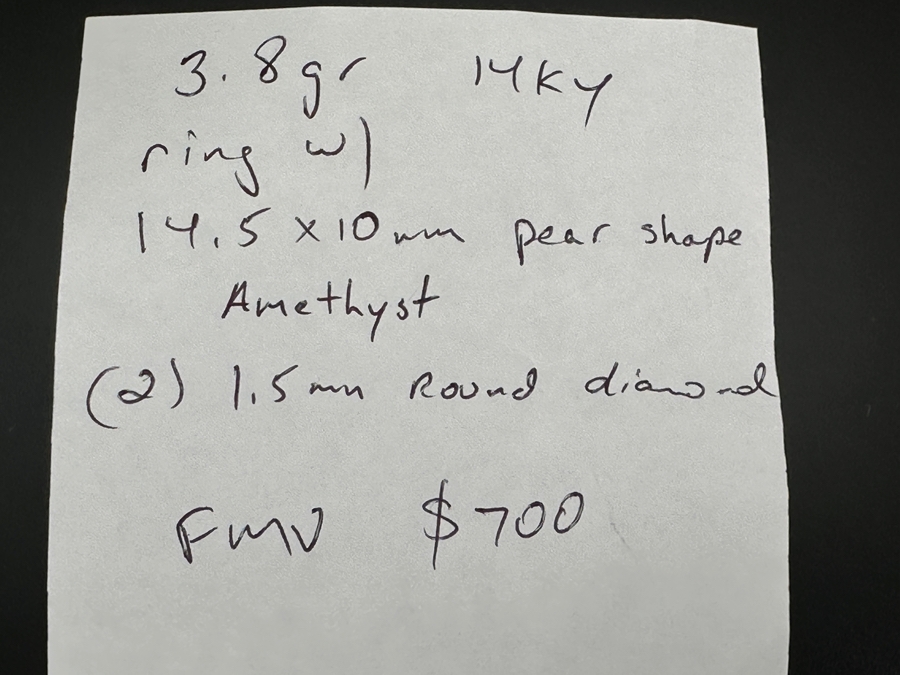 3.8gr 14KY
ring w/
14.5 x10mm pear shape
Amethyst
(2) 1.5mm Round diamond
FMV $700